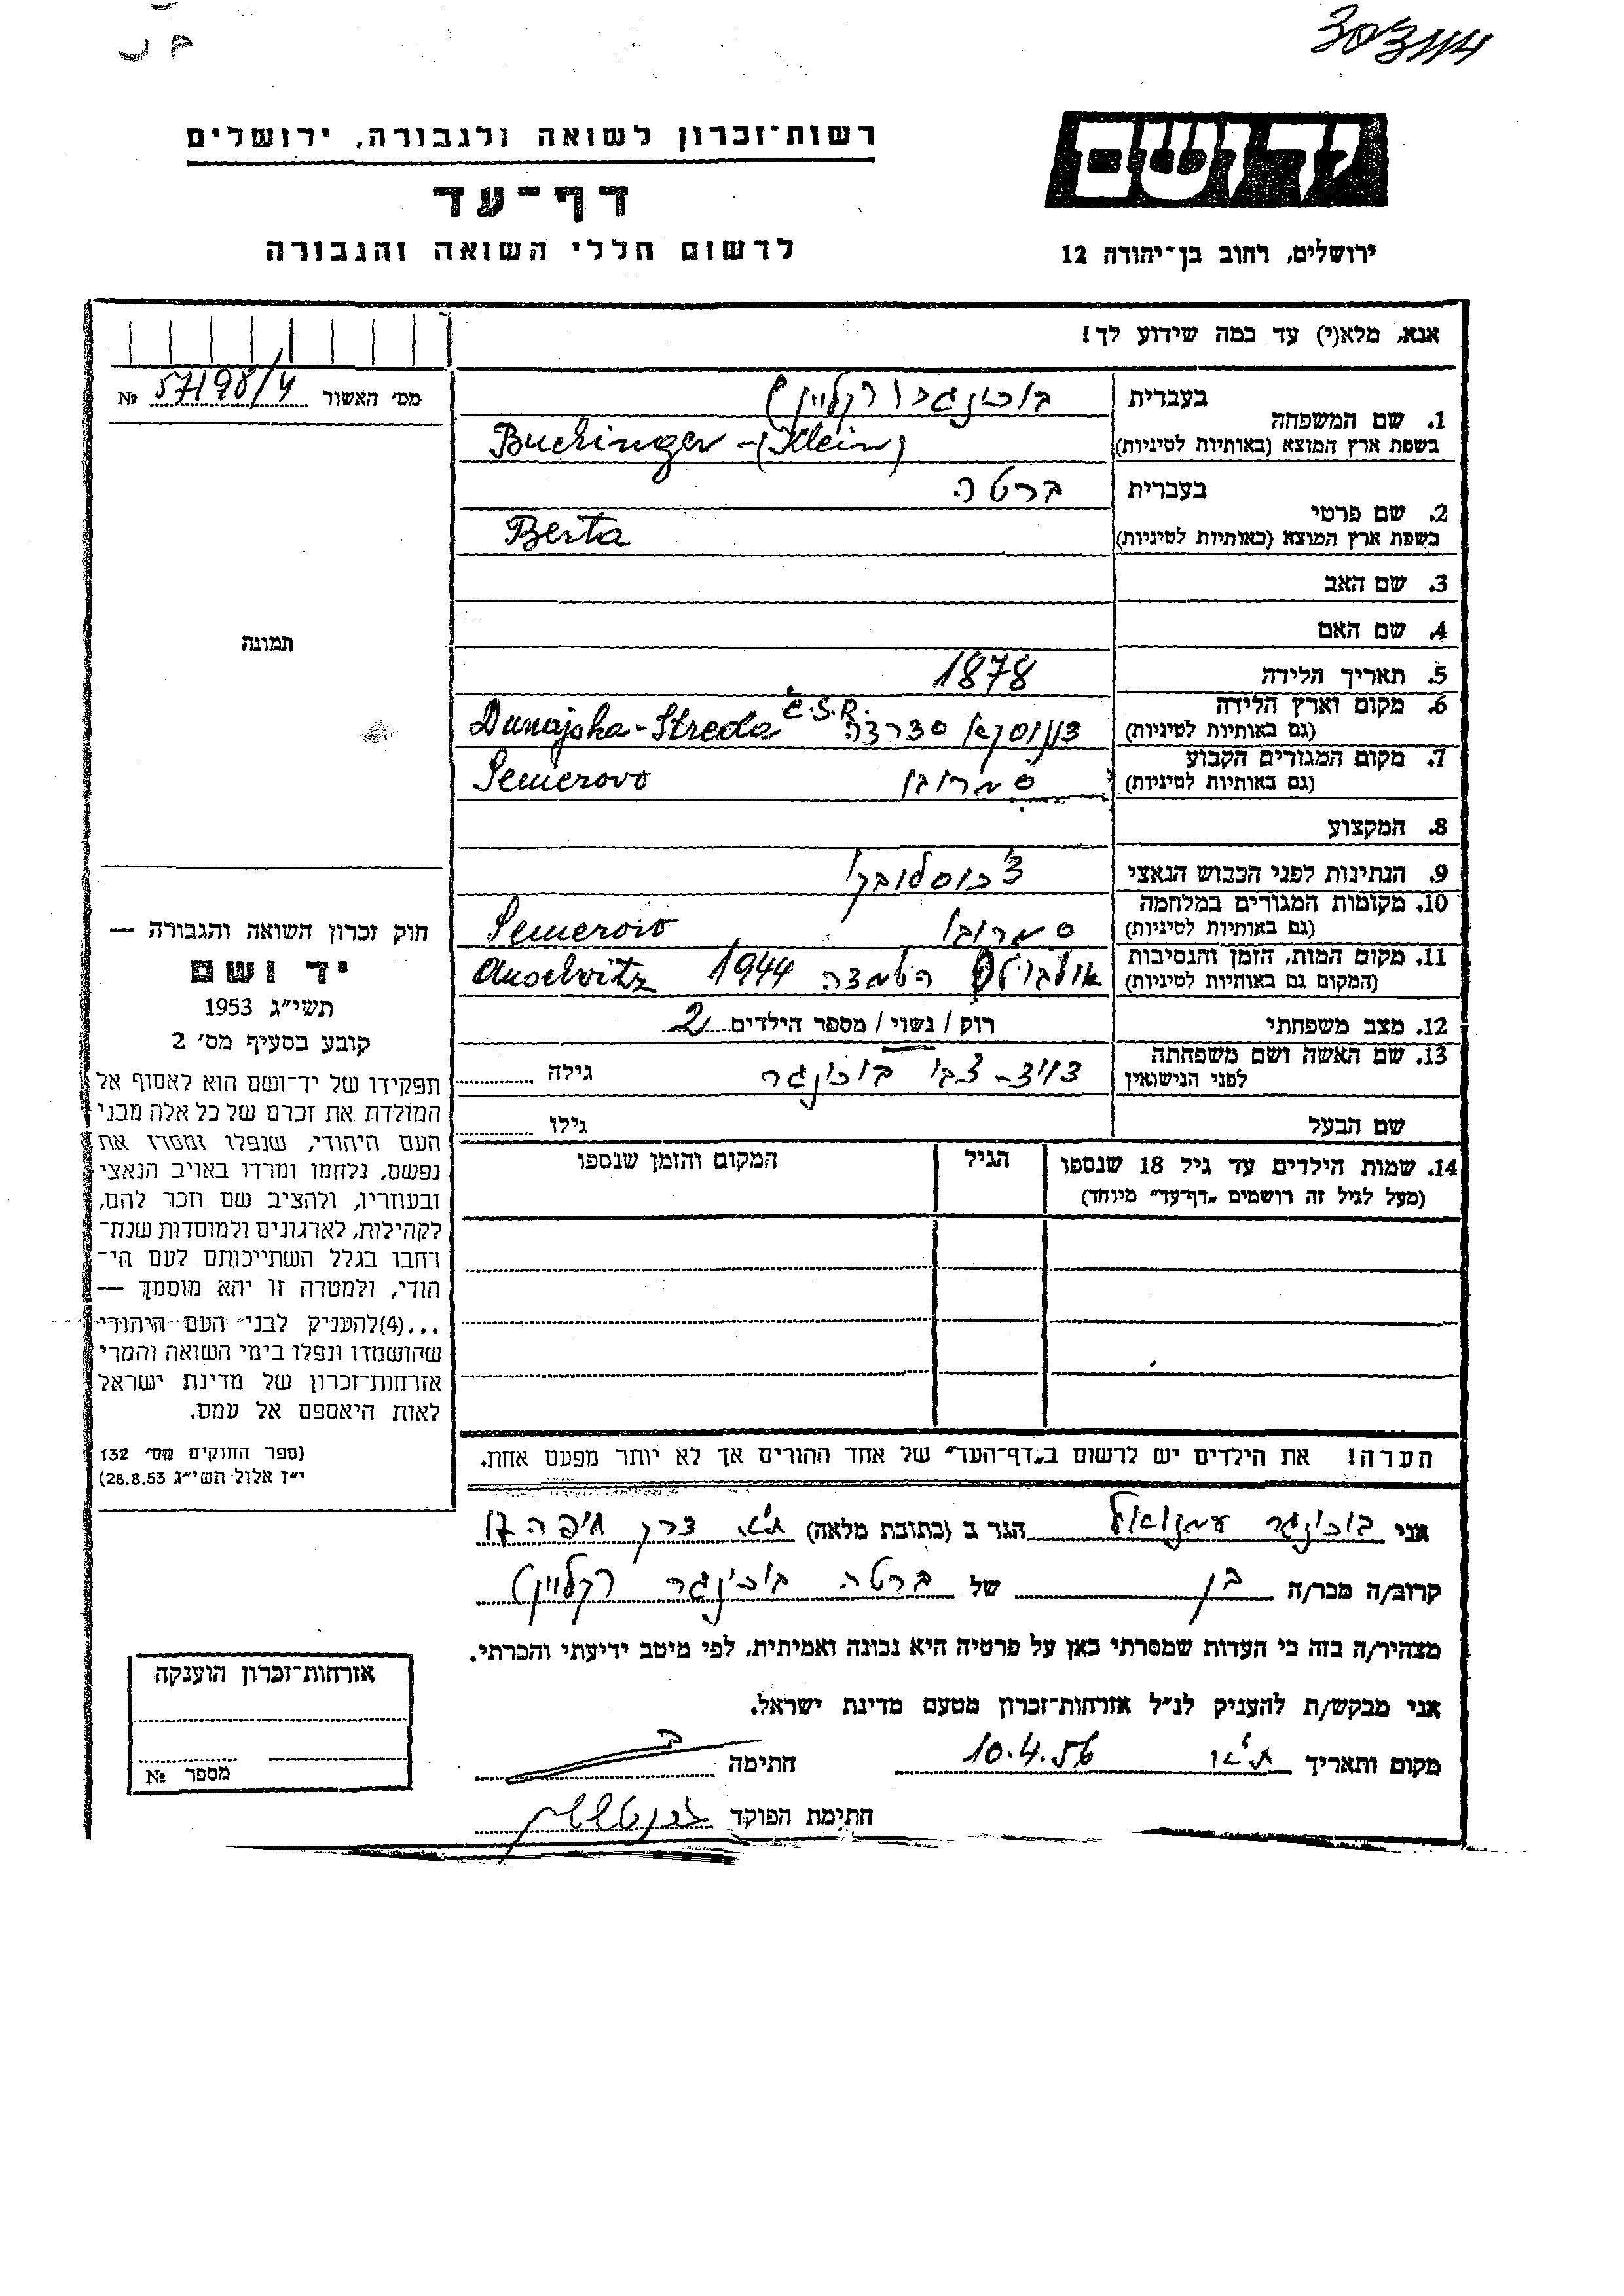 303114
רשות־זכרון לשואה ולגבורה, ירושלים
דף־עד
לרשום חללי השואה והגבורה
יד ושם
ירושלים, רחוב בן־יהודה 12
אנא, מלא(י) עד כמה שידוע לך!
מס׳ האשור 57198/4 №
תמונה
חוק זכרון השואה והגבורה —
יד ושם
תשי״ג 1953
קובע בסעיף מס׳ 2
תפקידו של יד־ושם הוא לאסוף אל
המולדת את זכרם של כל אלה מבני
העם היהודי, שנפלו ומסרו את
נפשם, נלחמו ומרדו באויב הנאצי
ובעוזריו, ולהציב שם וזכר להם,
לקהילות, לארגונים ולמוסדות שנח־
רחבו בגלל השתייכותם לעם הי־
הודי, ולמטרה זו יהא מוסמך —
...(4)להעניק לבני העם היהודי
שהושמדו ונפלו בימי השואה והמרי
אזרחות־זכרון של מדינת ישראל
לאות היאספם אל עמם.
(ספר החוקים מס׳ 132
י״ז אלול תשי״ג 28.8.53)
1. שם המשפחה
בעברית בוכינגר (קליין)
בשפת ארץ המוצא (באותיות לטיניות) Buchinger - (Klein)
2. שם פרטי
בעברית ברטה
בשפת ארץ המוצא (באותיות לטיניות) Berta
3. שם האב
4. שם האם
5. תאריך הלידה 1878
6. מקום וארץ הלידה
(גם באותיות לטיניות) סטרדה Dunajska-Streda Č.S.R.
7. מקום המגורים הקבוע
(גם באותיות לטיניות) סמרובו Semerovo
8. המקצוע
9. הנתינות לפני הכבוש הנאצי
10. מקומות המגורים במלחמה
(גם באותיות לטיניות) סמרובו Semerovo
11. מקום המות, הזמן והנסיבות
(המקום גם באותיות לטיניות) הושמדה 1944 Auschvitz
12. מצב משפחתי רוק / נשוי / מספר הילדים 2
13. שם האשה ושם משפחתה
לפני הנישואין בוכינגר גילה
שם הבעל גילו
14. שמות הילדים עד גיל 18 שנספו הגיל המקום והזמן שנספו
(מעל לגיל זה רושמים „דף־עד״ מיוחד)
הערה! את הילדים יש לרשום ב„דף־העד״ של אחד ההורים אך לא יותר מפעם אחת.
אני בוכינגר עמנואל הגר ב (כתובת מלאה) ת״א דרך חיפה 17
קרוב/ה מכר/ה בן של ברטה בוכינגר (קליין)
מצהיר/ה בזה כי העדות שמסרתי כאן על פרטיה היא נכונה ואמיתית, לפי מיטב ידיעתי והכרתי.
אני מבקש/ת להעניק לנ״ל אזרחות־זכרון מטעם מדינת ישראל.
מקום ותאריך ת״א 10.4.56 חתימה
חתימת הפוקד
אזרחות־זכרון הוענקה
מספר №